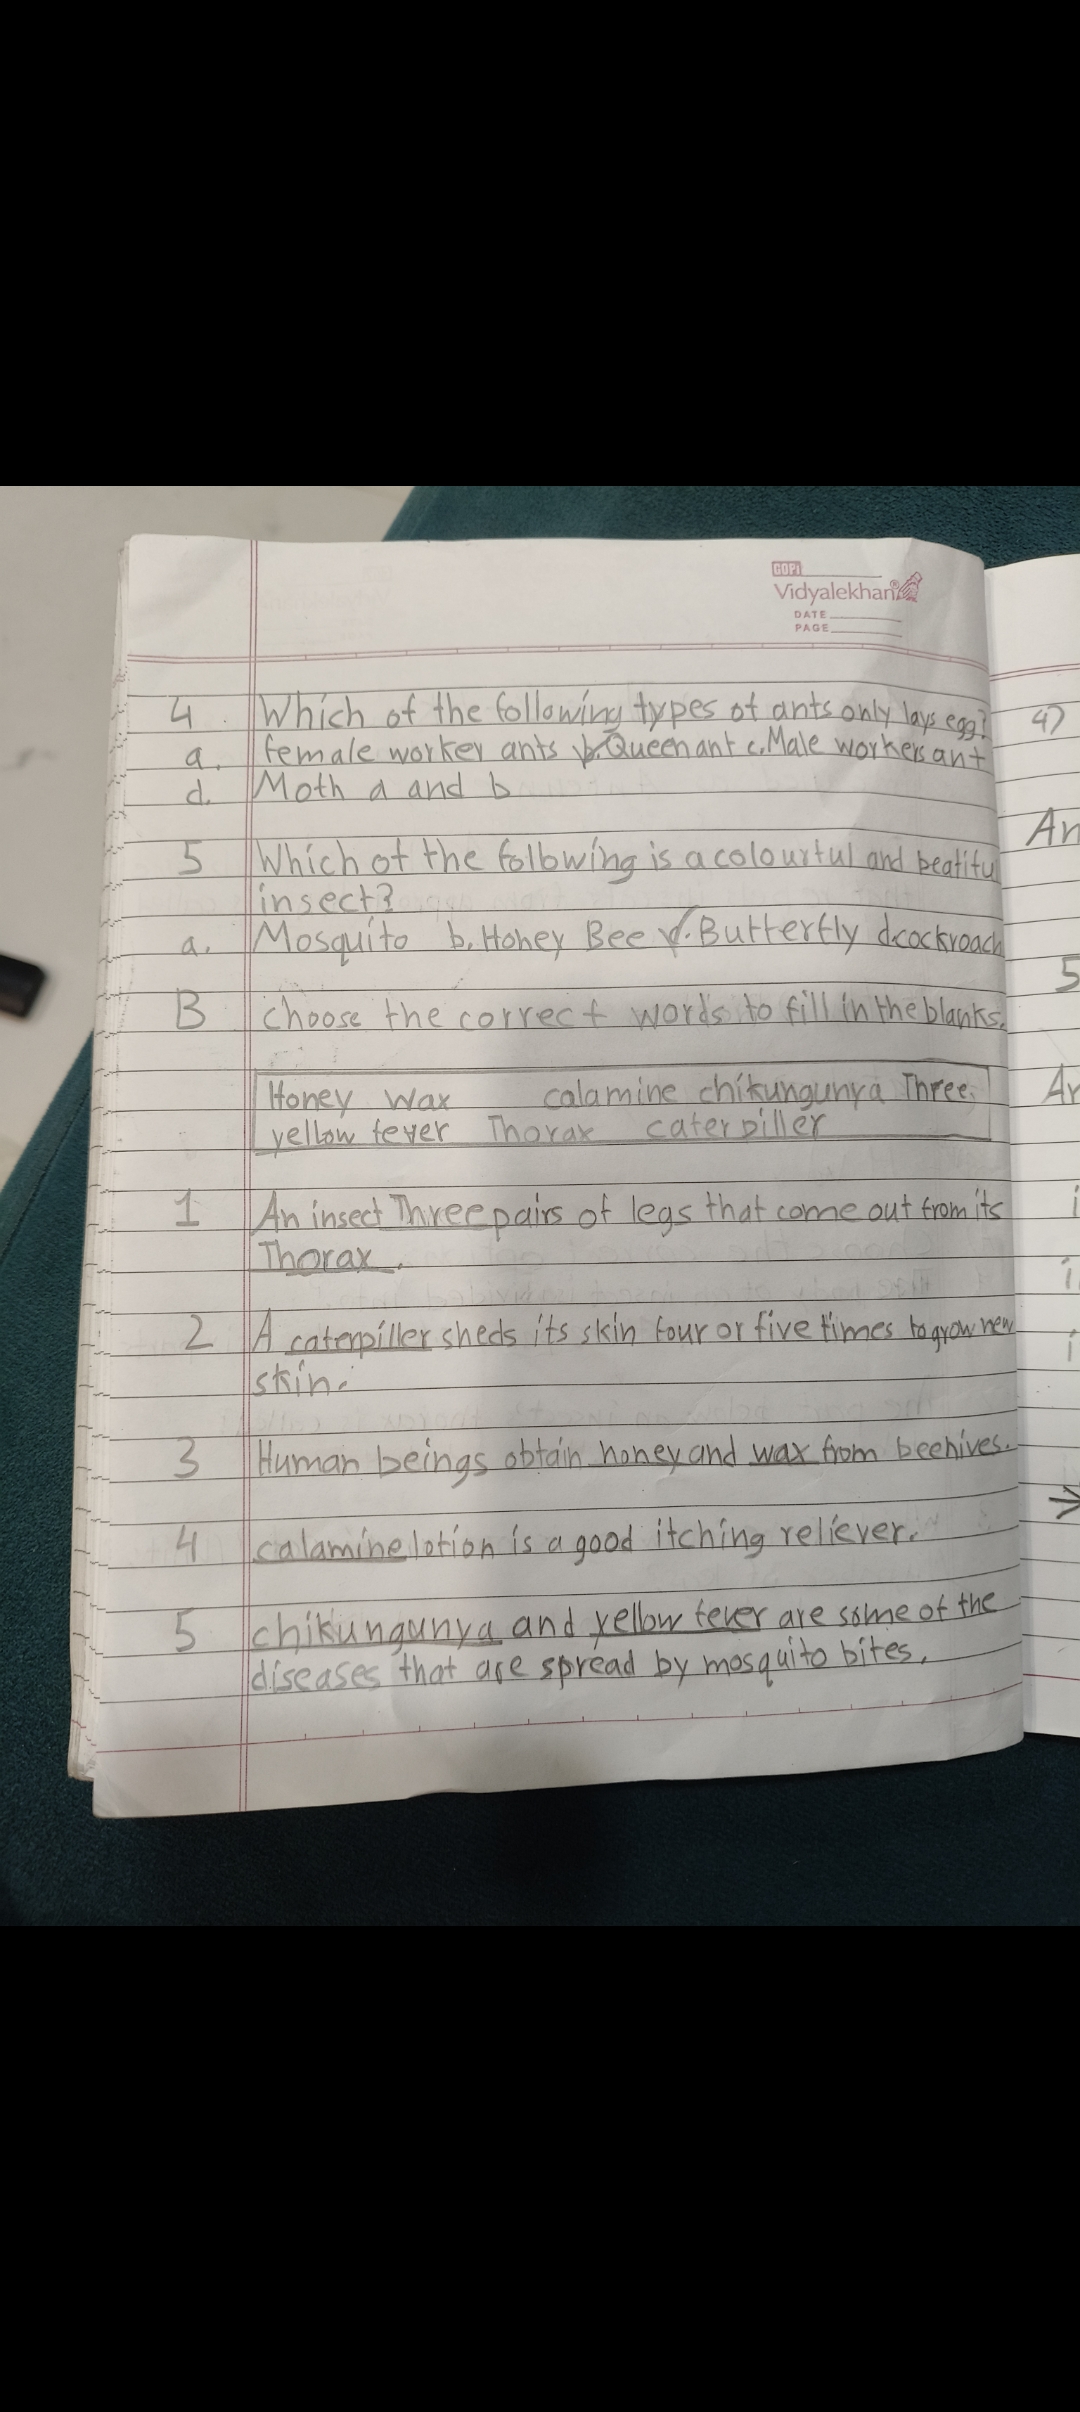 GOPI
Vidyalekhan®
DATE
PAGE
4. Which of the following types of ants only lays egg?
a. female worker ants b. Queen ant c. Male workers ant
d. Moth a and b
5 Which of the following is a colourful and beatiful
insect?
a. Mosquito b. Honey Bee c. Butterfly d. cockroach
B choose the correct words to fill in the blanks.
Honey wax calamine chikungunya Three.
yellow fever Thorax caterpiller
1 An insect Three pairs of legs that come out from its
Thorax.
2 A caterpiller sheds its skin four or five times to grow new
skin.
3 Human beings obtain honey and wax from beehives.
4 calamine lotion is a good itching reliever.
5 chikungunya and yellow fever are some of the
diseases that are spread by mosquito bites.
4)
An
5
Ar
i
i
i
→